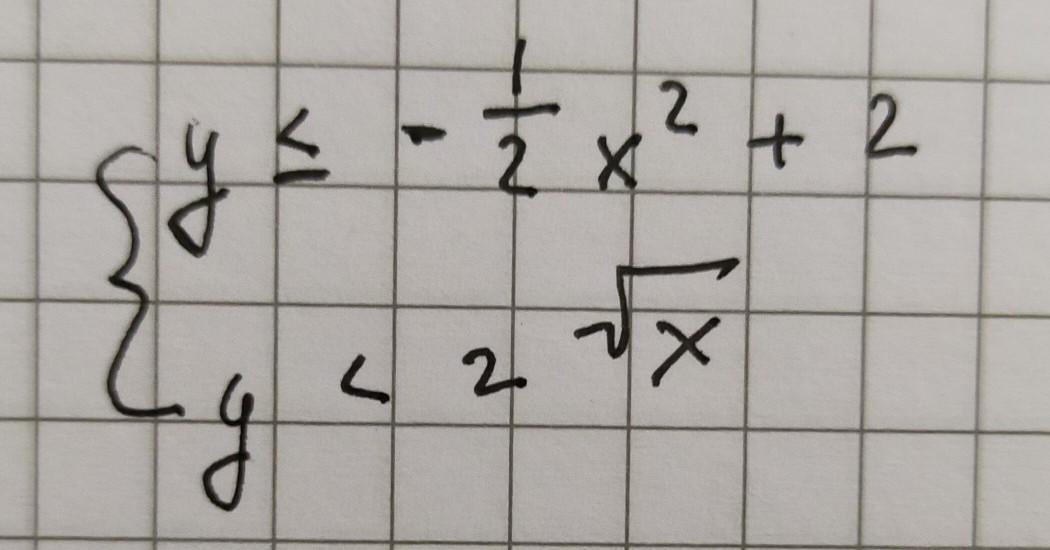 y ≤ - 1/2 x² + 2
y < 2 √x